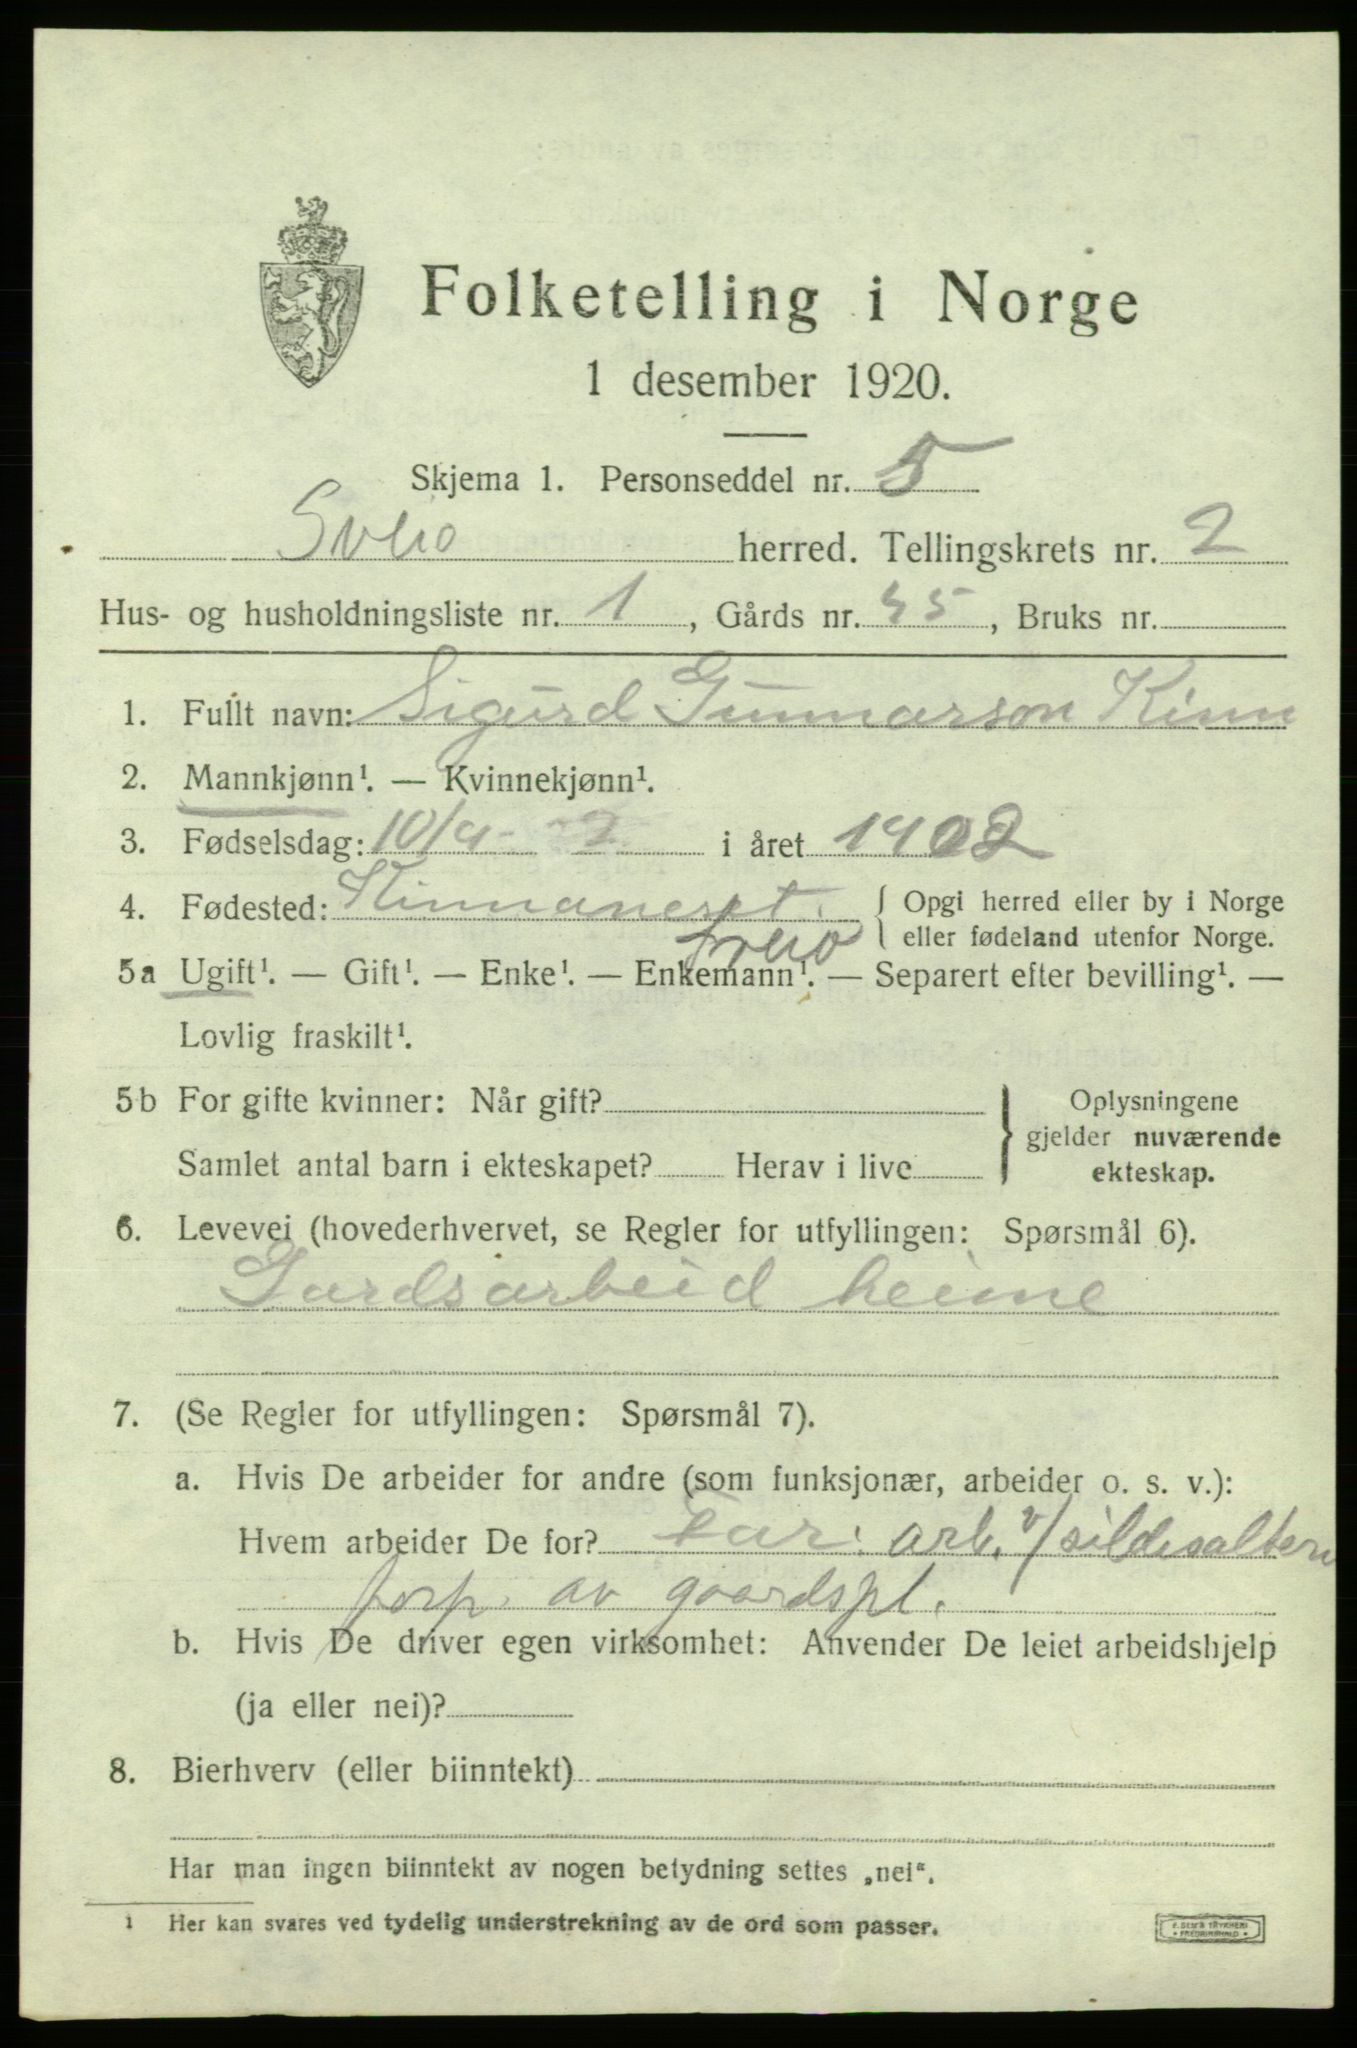 Folketelling i Norge
1 desember 1920.
Skjema 1. Personseddel nr. 5
Sveio herred. Tellingskrets nr. 2
Hus- og husholdningsliste nr. 1, Gårds nr. 45, Bruks nr.
1. Fullt navn: Sigurd Gunnarson Kinn
2. Mannkjønn¹. — Kvinnekjønn¹.
3. Fødselsdag: 10/9 i året 1902
4. Fødested: Kinnaneset. { Opgi herred eller by i Norge
Sveio eller fødeland utenfor Norge.
5a Ugift¹. — Gift¹. — Enke¹. — Enkemann¹. — Separert efter bevilling¹. —
Lovlig fraskilt¹.
5b For gifte kvinner: Når gift? } Oplysningene
gjelder nuværende
Samlet antal barn i ekteskapet? Herav i live
ekteskap.
6. Levevei (hovederhvervet, se Regler for utfyllingen: Spørsmål 6).
Gardsarbeid heime
7. (Se Regler for utfyllingen: Spørsmål 7).
a. Hvis De arbeider for andre (som funksjonær, arbeider o. s. v.):
Hvem arbeider De for? Far. arb. v/ sildesalteri
forp. av gaardspl.
b. Hvis De driver egen virksomhet: Anvender De leiet arbeidshjelp
(ja eller nei)?
8. Bierhverv (eller biinntekt)
Har man ingen biinntekt av nogen betydning settes „nei“.
1 Her kan svares ved tydelig understrekning av de ord som passer.